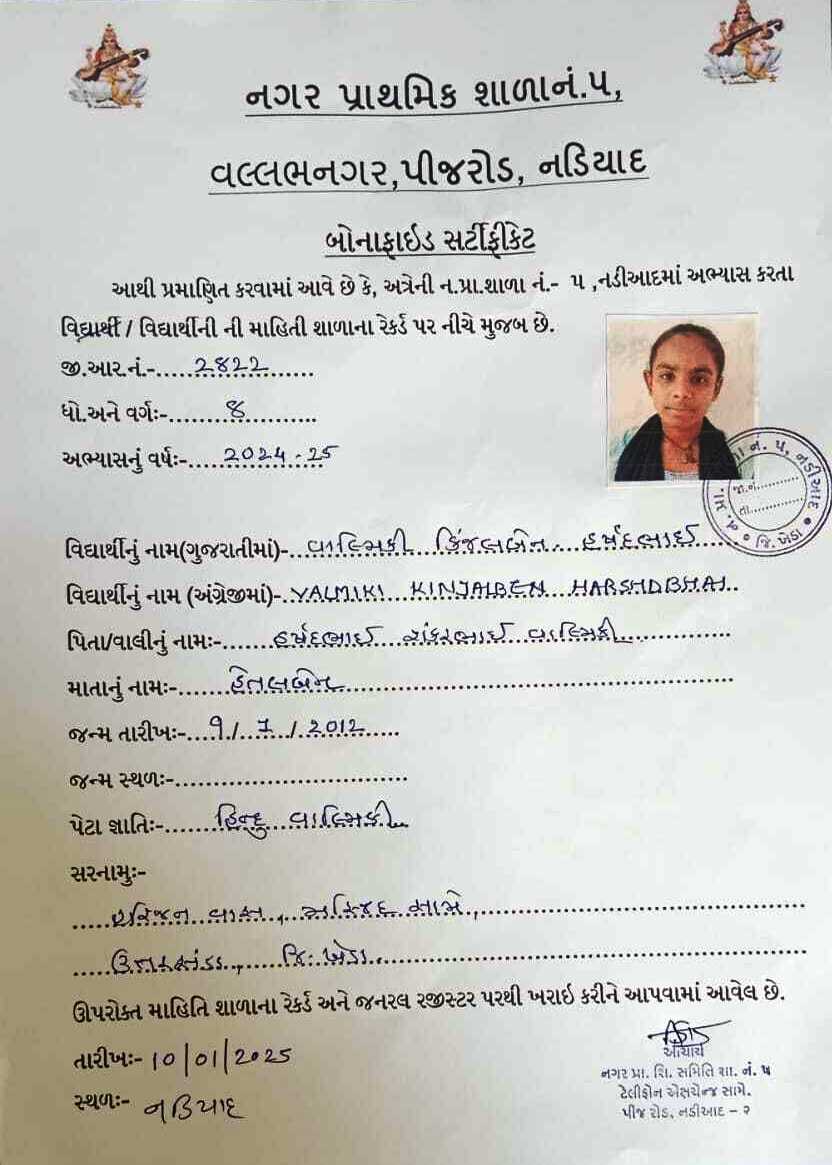 નગર પ્રાથમિક શાળાનં.૫,
વલ્લભનગર,પીજરોડ, નડિયાદ
બોનાફાઇડ સર્ટીફીકેટ
આથી પ્રમાણિત કરવામાં આવે છે કે, અત્રેની ન.પ્રા.શાળા નં.- ૫ ,નડીઆદમાં અભ્યાસ કરતા
વિદ્યાર્થી / વિદ્યાર્થીની ની માહિતી શાળાના રેકર્ડ પર નીચે મુજબ છે.
જી.આર.નં.-.....૨૮૨૨......
ધો.અને વર્ગઃ-........૪..........
અભ્યાસનું વર્ષઃ-.....2024-25
ન. પ્રા. શા નં. ૫, નડીઆદ
જિ. ખેડા
જા.નં............
તા..............
વિદ્યાર્થીનું નામ(ગુજરાતીમાં)-..વાલ્મિકી...કિંજલબેન....હર્ષદભાઈ.....
વિદ્યાર્થીનું નામ (અંગ્રેજીમાં)-..VALMIKI...KINJALBEN...HARSHDBHAI..
પિતા/વાલીનું નામઃ-.......હર્ષદભાઈ...શંકરભાઈ..વાલ્મિકી...............
માતાનું નામઃ-.......હેતલબેન.............................................
જન્મ તારીખઃ-...૧./..7../.2.012.....
જન્મ સ્થળઃ-...............................
પેટા જ્ઞાતિઃ-.......હિન્દુ...વાલ્મિકી..
સરનામુઃ-
.....હરિજન..વાસ..,..મસ્જિદ..સામે.,.......................................
.....ઉત્તરસંડા..,.....જિ:.ખેડા.................................................
ઊપરોક્ત માહિતિ શાળાના રેકર્ડ અને જનરલ રજીસ્ટર પરથી ખરાઇ કરીને આપવામાં આવેલ છે.
તારીખઃ- 10/01/2025
સ્થળઃ- નડિયાદ
આચાર્ય
નગર પ્રા. શિ. સમિતિ શા. નં. ૫
ટેલીફોન એક્સચેન્જ સામે.
પીજ રોડ, નડીઆદ - ૨